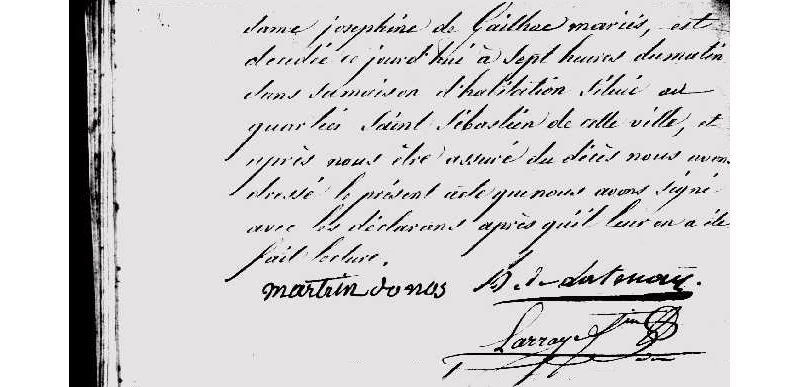 dame josephine de Gailhac mariés, est
decedée ce jourd'hui à sept heures du matin
dans sa maison d'habitation située au
quartier Saint Sébastien de cette ville, et
après nous être assuré du décès nous avons
dressé le présent acte que nous avons signé
avec les déclarans après qu'il leur en a été
fait lecture.
martin donos